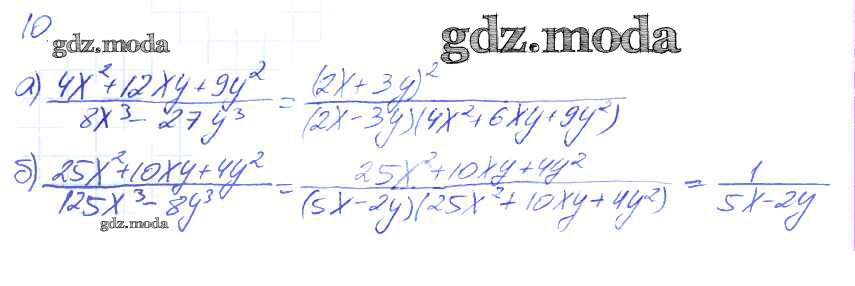 10
gdz.moda
gdz.moda
а) (4x²+12xy+9y²)/(8x³-27y³) = (2x+3y)²/((2x-3y)(4x²+6xy+9y²))
б) (25x²+10xy+4y²)/(125x³-8y³) = (25x²+10xy+4y²)/((5x-2y)(25x²+10xy+4y²)) = 1/(5x-2y)
gdz.moda